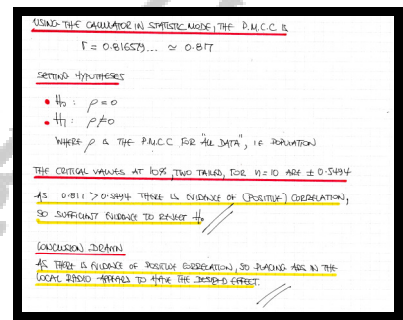 USING THE CALCULATOR IN STATISTIC MODE, THE P.M.C.C IS
r = 0.816579... ≃ 0.817
SETTING HYPOTHESES
• H₀ : ρ = 0
• H₁ : ρ ≠ 0
WHERE ρ IS THE P.M.C.C FOR "ALL DATA", IE POPULATION
THE CRITICAL VALUES AT 10%, TWO TAILED, FOR n = 10 ARE ± 0.5494
AS 0.817 > 0.5494 THERE IS EVIDENCE OF (POSITIVE) CORRELATION,
SO SUFFICIENT EVIDENCE TO REJECT H₀
CONCLUSION DRAWN
AS THERE IS EVIDENCE OF POSITIVE CORRELATION, SO PLACING ADS IN THE
LOCAL RADIO APPEARS TO HAVE THE DESIRED EFFECT.